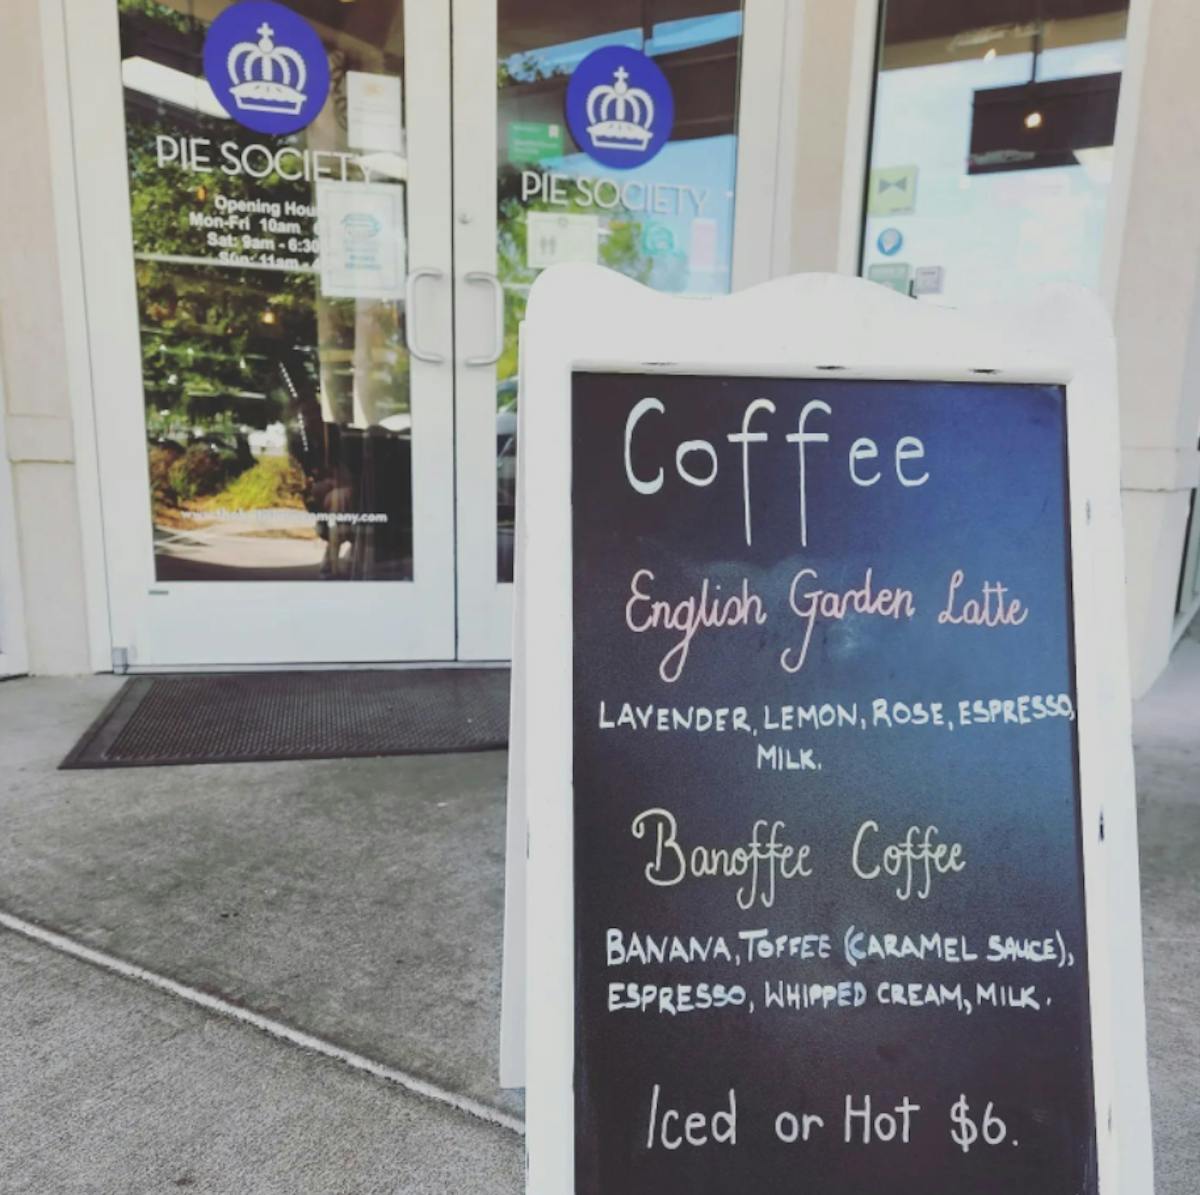 PIE SOCIETY
Opening
Mon-Fri 10am
Sat: 9am - 6:30
Sun: 11am -
PIE SOCIETY
Coffee
English Garden Latte
LAVENDER, LEMON, ROSE, ESPRESSO,
MILK.
Banoffee Coffee
BANANA, TOFFEE (CARAMEL SAUCE),
ESPRESSO, WHIPPED CREAM, MILK.
Iced or Hot $6.